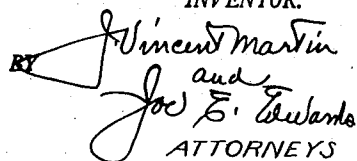 INVENTOR.
BY J. Vincent Martin
and
Joe E. Edwards
ATTORNEYS